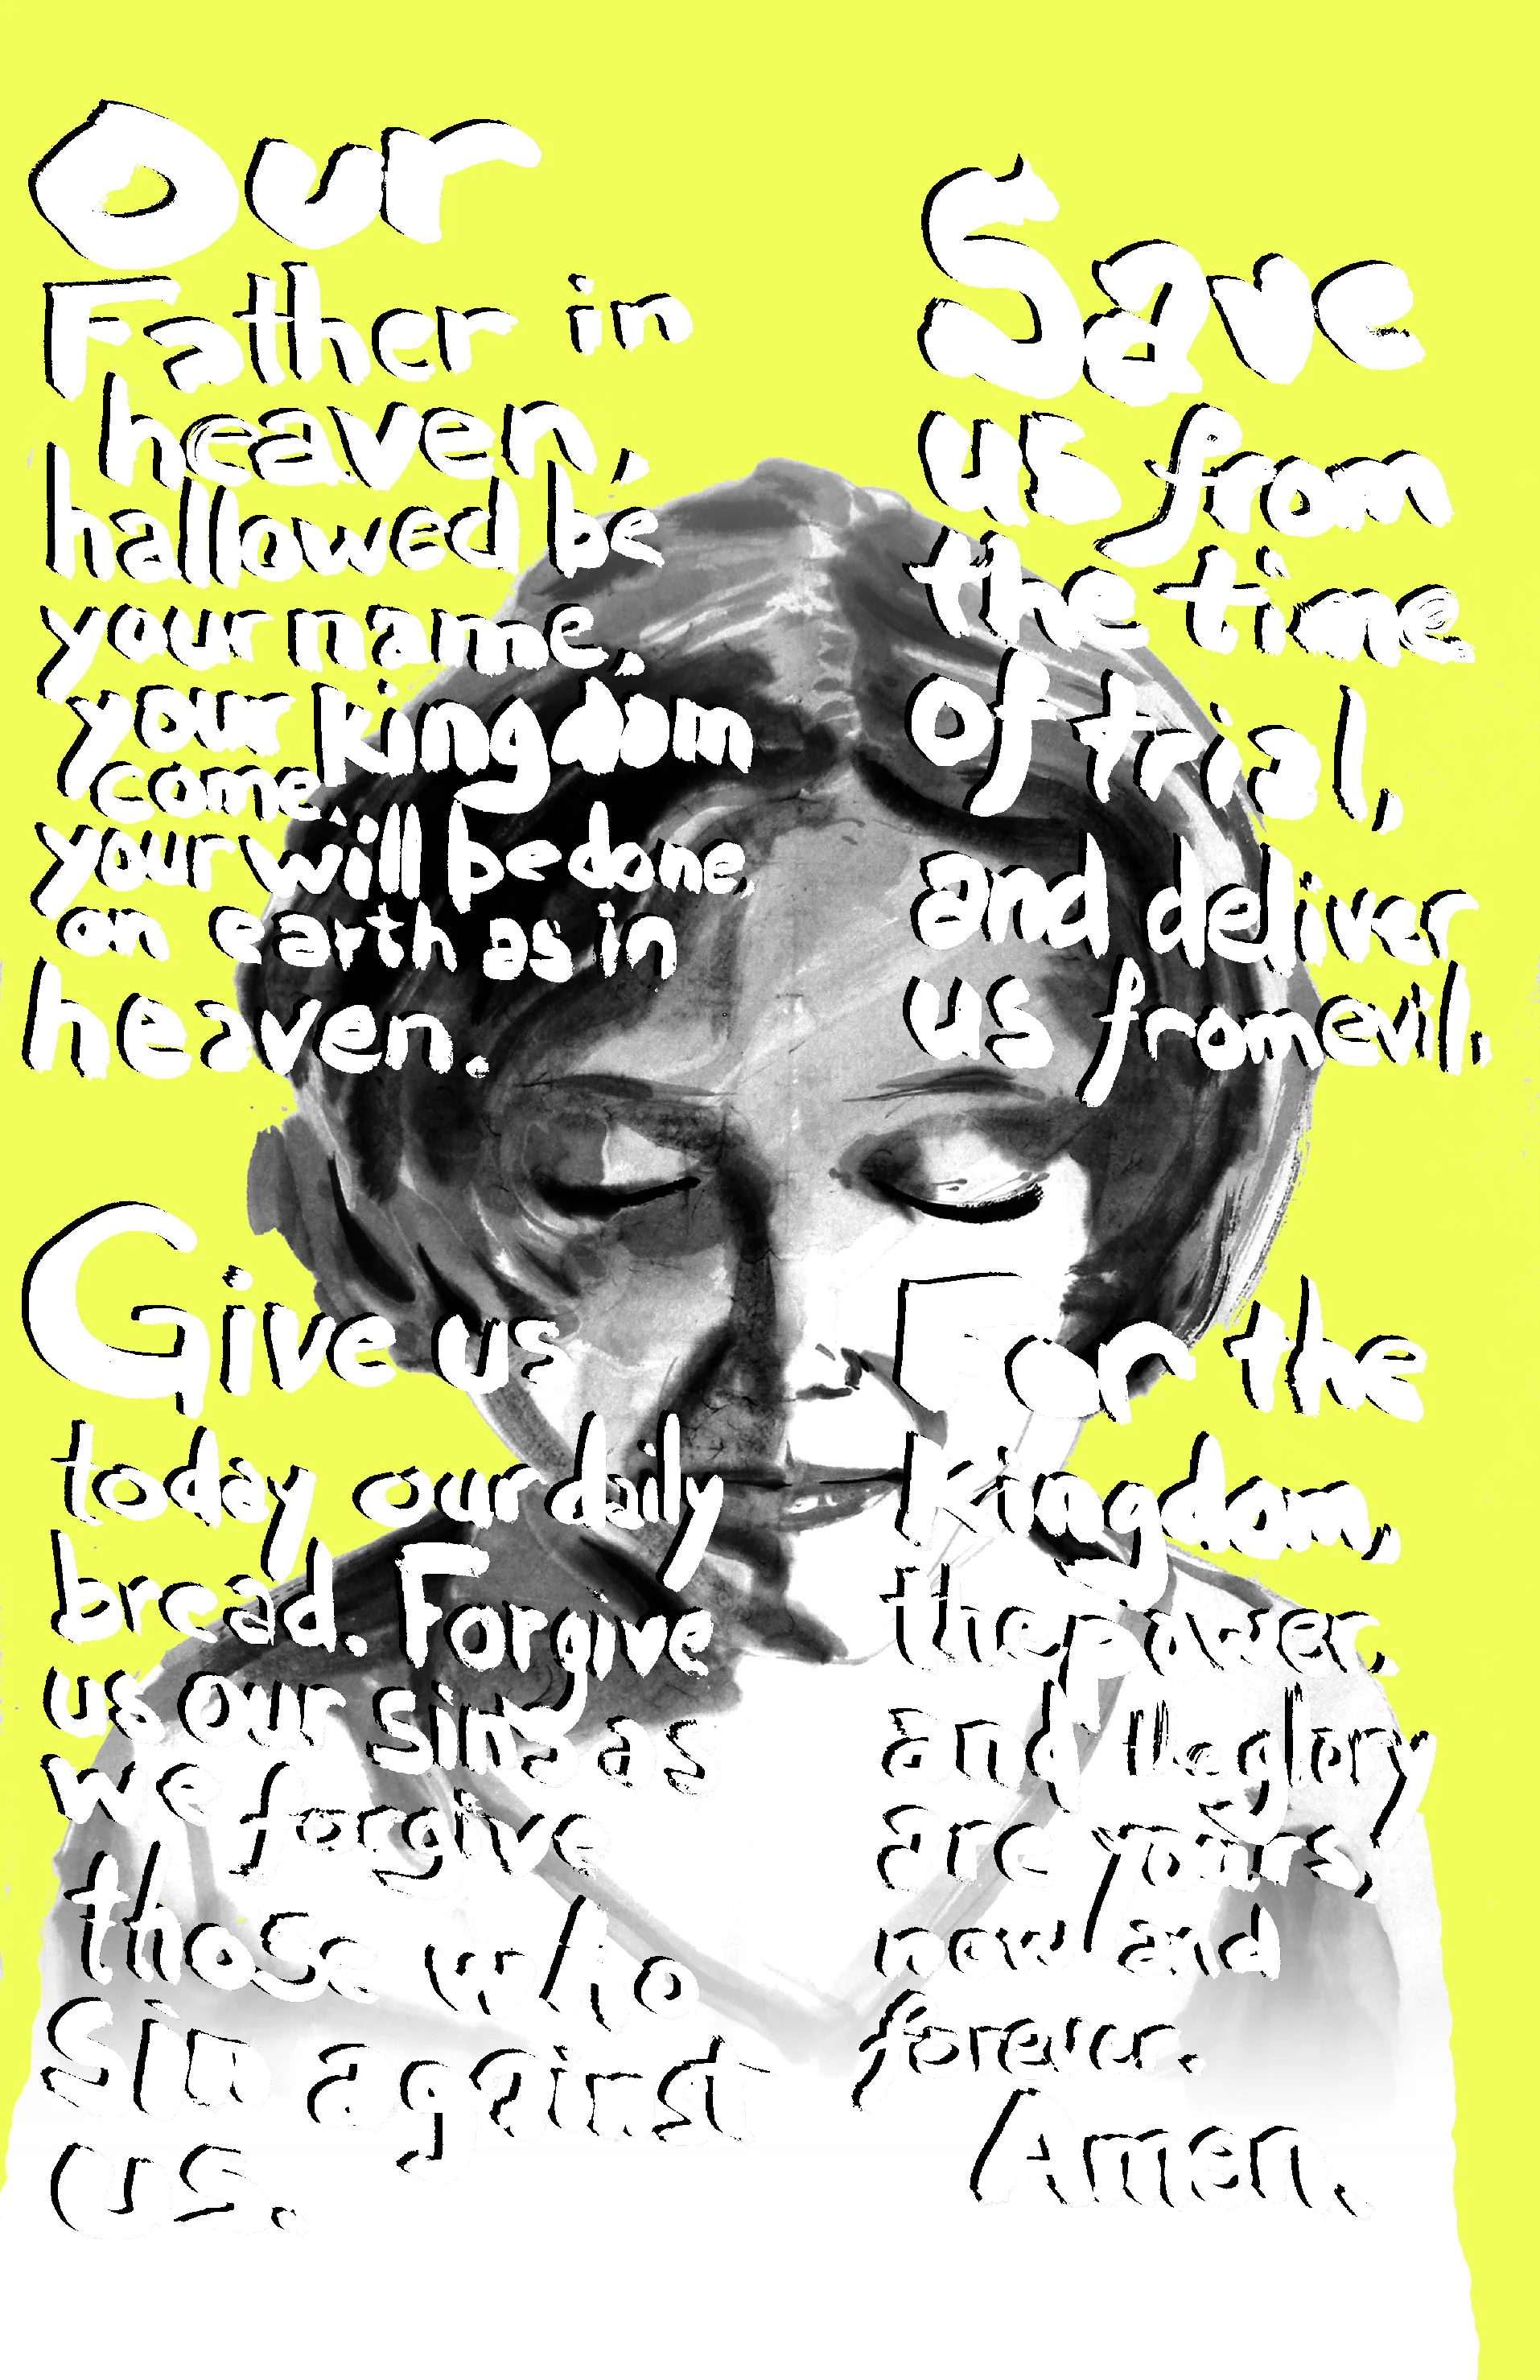 Our
Father in
heaven,
hallowed be
your name,
your kingdom
come,
your will be done,
on earth as in
heaven.
Give us
today our daily
bread. Forgive
us our sins as
we forgive
those who
sin against
us.
Save
us from
the time
of trial,
and deliver
us from evil.
For the
Kingdom,
the power,
and the glory
are yours,
now and
forever.
Amen.